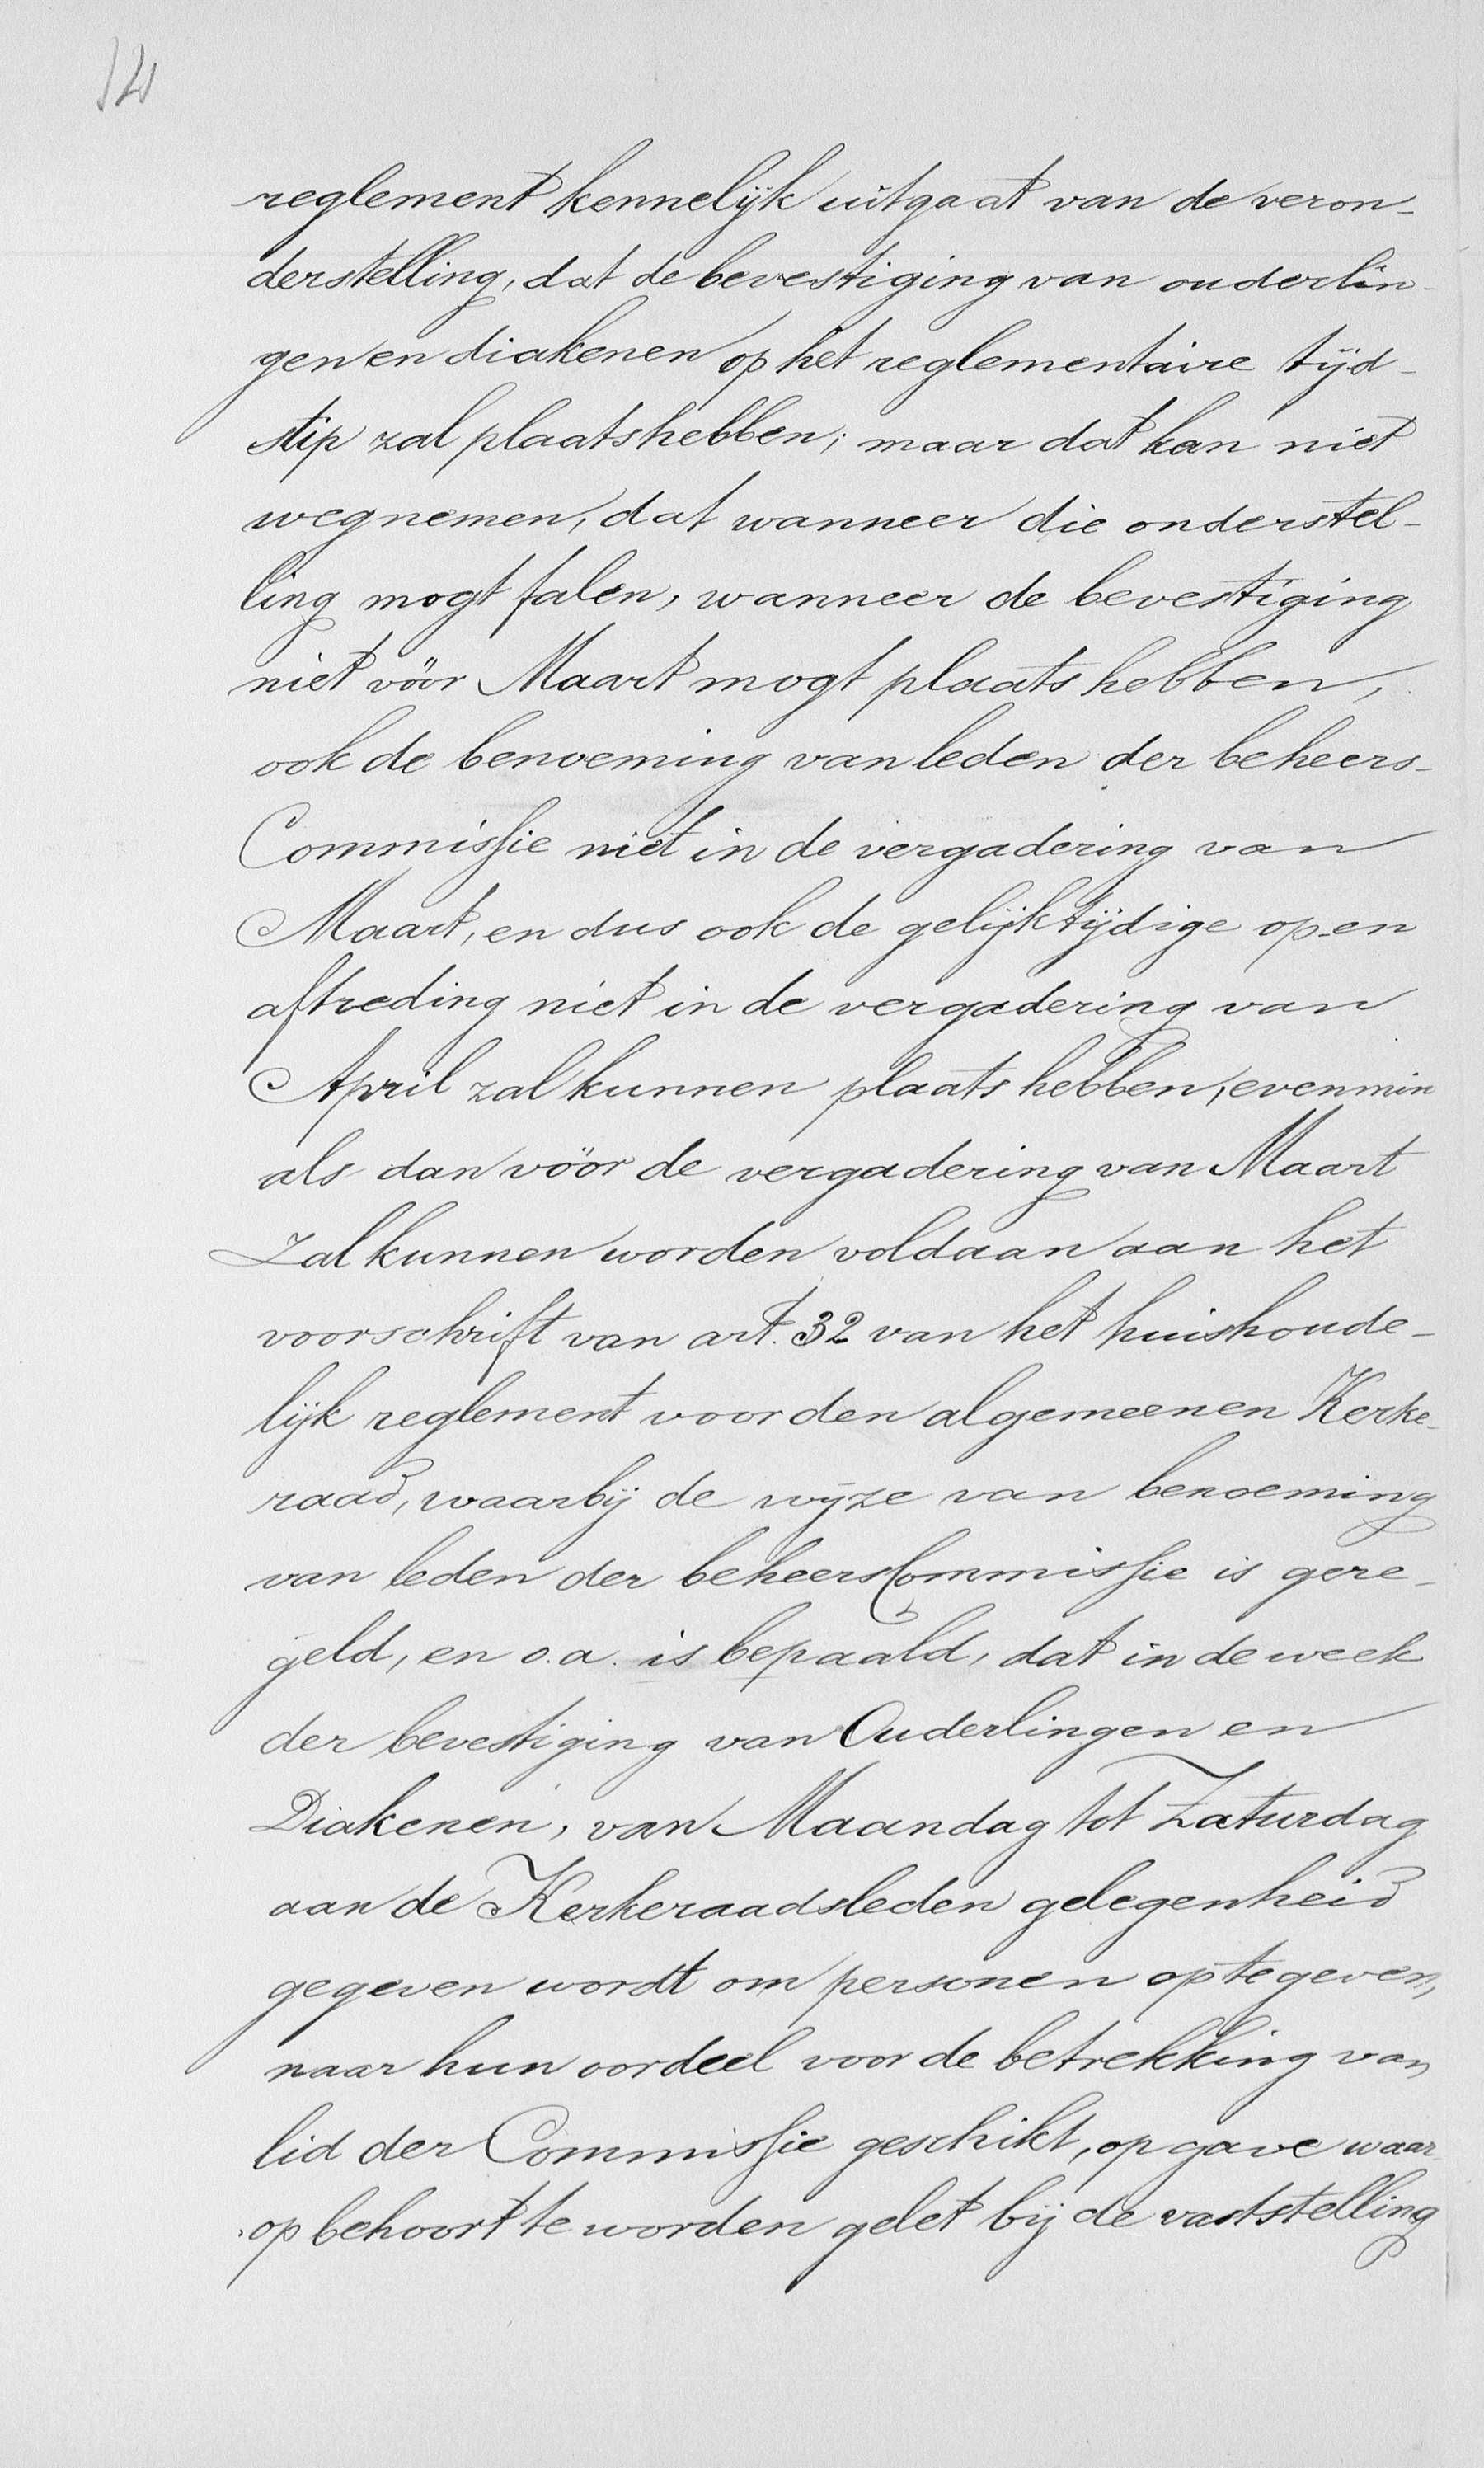 12
reglement kennelijk uitgaat van de veron-
derstelling, dat de bevestiging van ouderlin-
gen en diakenen op het reglementaire tijd-
stip zal plaats hebben; maar dat kan niet
wegnemen, dat wanneer die onderstel-
ling mogt falen, wanneer de bevestiging
niet vöör Maart mogt plaats hebben,
ook de benoeming van leden der beheers-
Commissie niet in de vergadering van
Maart, en dus ook de gelijktijdige op-en
aftreding niet in de vergadering van
April zal kunnen plaats hebben, evenmin
als dan vöör de vergadering van Maart
zal kunnen worden voldaan aan het
voorschrift van art. 32 van het huishoude-
lijk reglement voor den algemeenen Kerke-
raad, waarbij de wijze van benoeming
van leden der beheersCommissie is gere-
geld, en o.a. is bepaald, dat in de week
der bevestiging van Ouderlingen en
Diakenen, van Maandag tot Zaturdag
aan de Kerkeraadsleden gelegenheid
gegeven wordt om personen optegeven,
naar hun oordeel voor de betrekking van
lid der Commissie geschikt, opgave waar-
op behoort te worden gelet bij de vaststelling